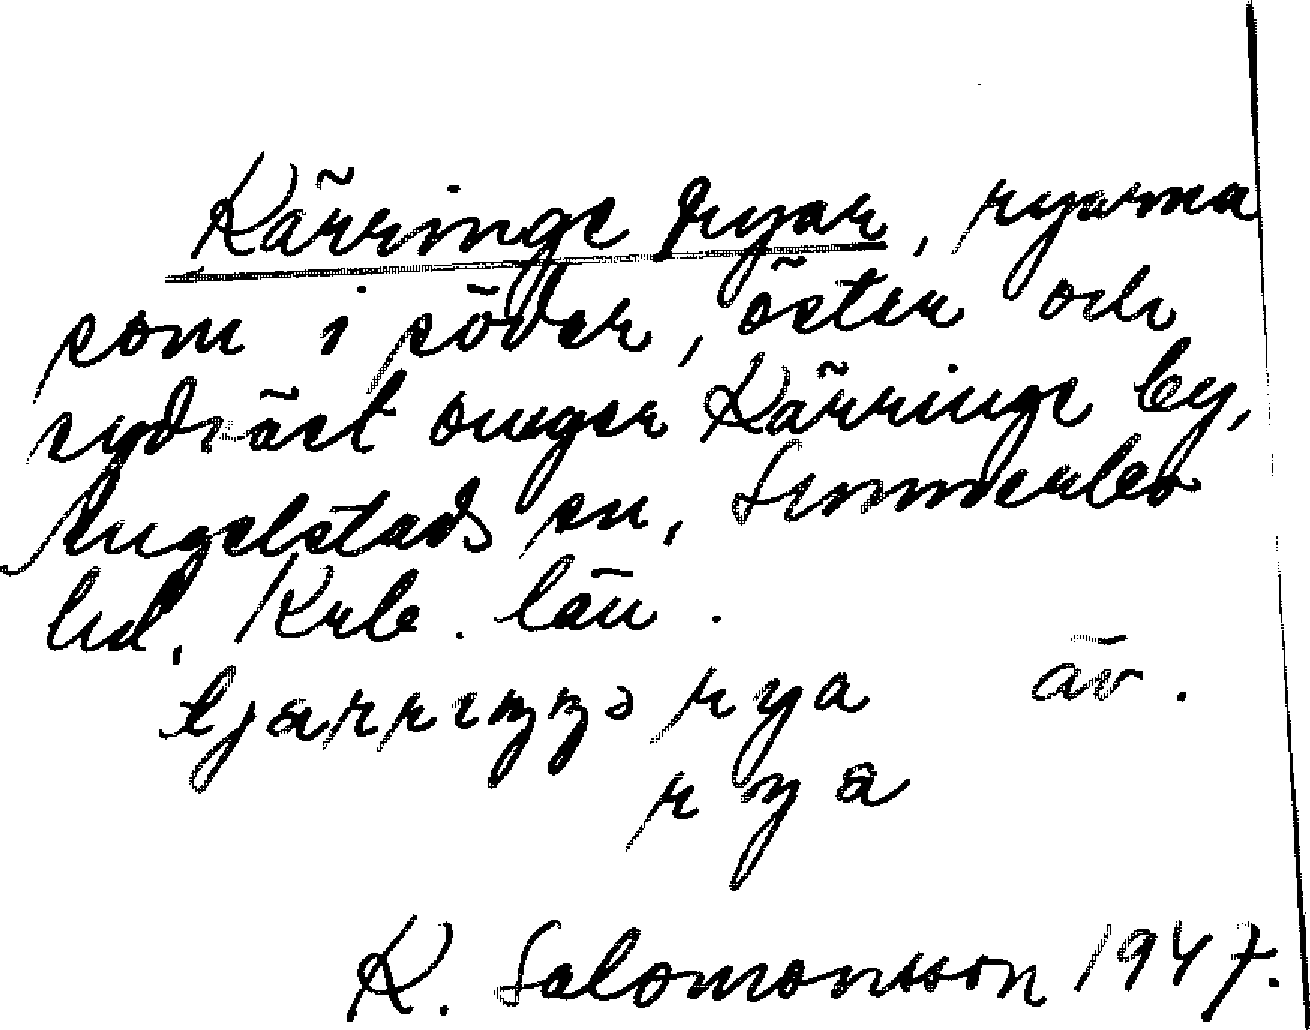 Kärringe ryar, ryarna
som i söder, öster och
sydväst omger Kärringe by,
Angelstads sn, Sunnerbo
hd, Krb. län.
rya äv.
rya
K. Salomonsson 1947.